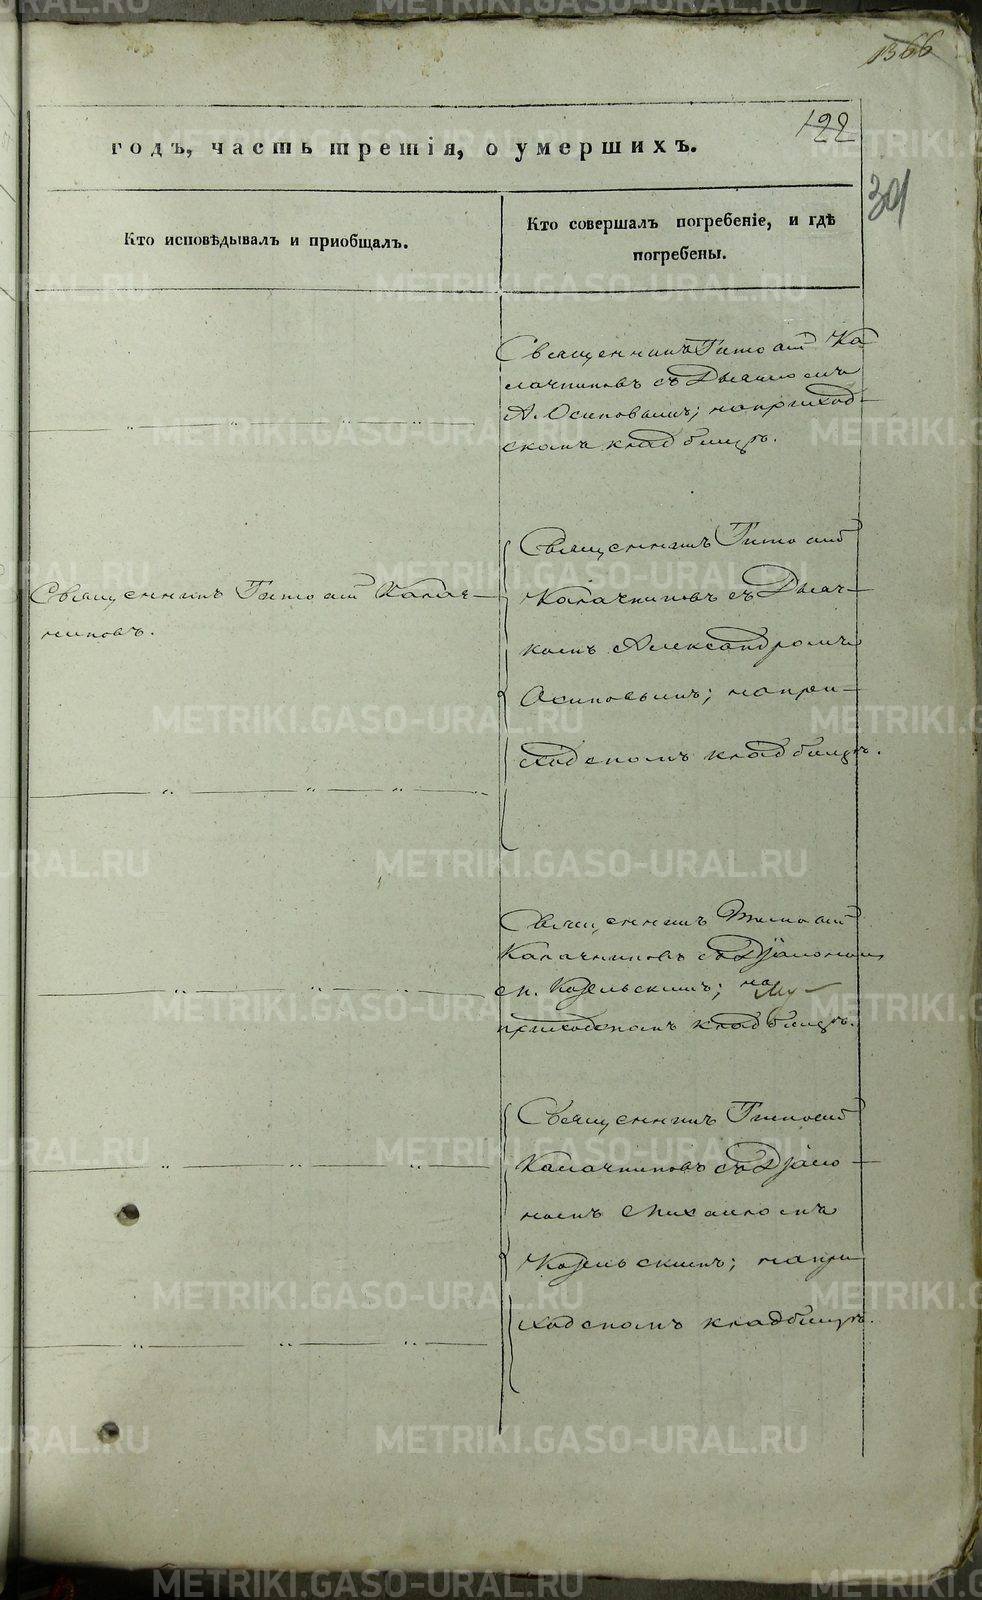 1366
122
301
годъ, часть третія, о умершихъ.
Кто исповѣдывалъ и приобщалъ.
Кто совершалъ погребеніе, и гдѣ
погребены.
Священникъ Тимоѳей Ка
лачниковъ съ Дьякономъ
А. Осиповымъ; на приход-
скомъ кладбищѣ.
Священникъ Тимоѳей Калач-
никовъ.
Священникъ Тимоѳей
Калачниковъ съ Дьяч-
комъ Александромъ
Осиповымъ; на при-
ходскомъ кладбищѣ.
Священникъ Тимоѳей
Калачниковъ съ Діакономъ
М. Козельскимъ; на
приходскомъ кладбищѣ.
Священникъ Тимоѳей
Калачниковъ съ Діако-
номъ Михаиломъ
Козельскимъ; на при
ходскомъ кладбищѣ.
METRIKI.GASO-URAL.RU